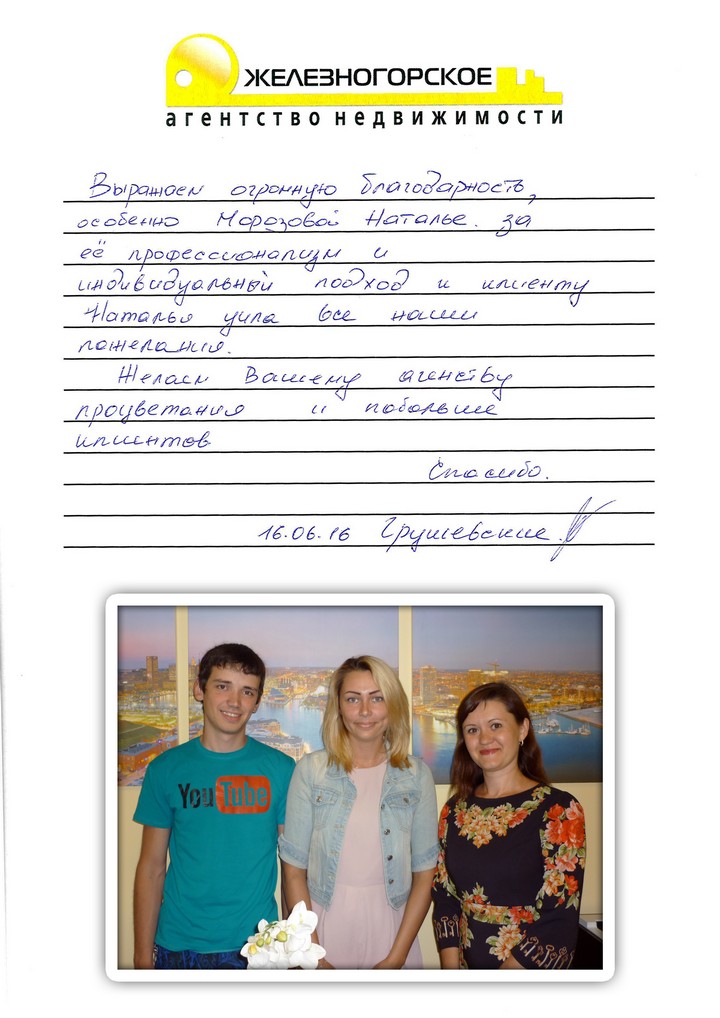 ЖЕЛЕЗНОГОРСКОЕ
агентство недвижимости
Выражаем огромную благодарность,
особенно Морозовой Наталье. за
её профессионализм и
индивидуальный подход к клиенту
Наталья учла все наши
пожелания.
Желаем Вашему агенству
процветания и побольше
клиентов
Спасибо.
16.06.16 Грушевские.
You Tube